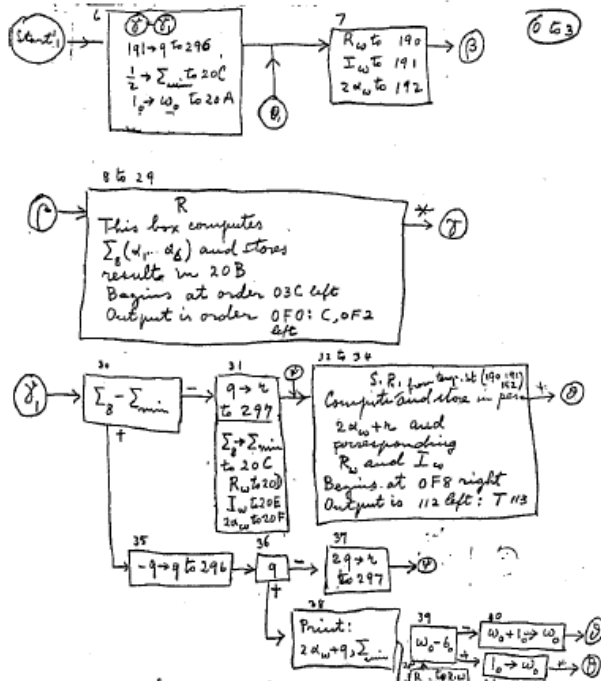 Start 1
6
γ → γ1
191 → q to 296
½ → Σmin to 20C
1₀ → ω₀ to 20A
7
Rω to 190
Iω to 191
2αω to 192
β
6 to 3
8 to 29
R
This box computes
Σ8 (α1... α6) and stores
results in 20B
Begins at order 03C left
Output is order 0F0: C, 0F2
left
*
γ
γ1
30
Σ8 - Σmin
-
+
31
q → r
to 297
Σ8 → Σmin
to 20C
Rω to 20D
Iω to 20E
2αω to 20F
32 to 34
S.R. from temp. st (190, 191
192)
Compute and store in
2αω + r and
corresponding
Rω and Iω
Begins at 0F8 right
Output is 112 left: T 113
+
35
-q → q to 296
36
q
-
+
37
2q → r
to 297
38
Print:
2αω + q, Σmin
39
ω₀ - 6₀
-
+
40
ω₀ + 1₀ → ω₀
1₀ → ω₀